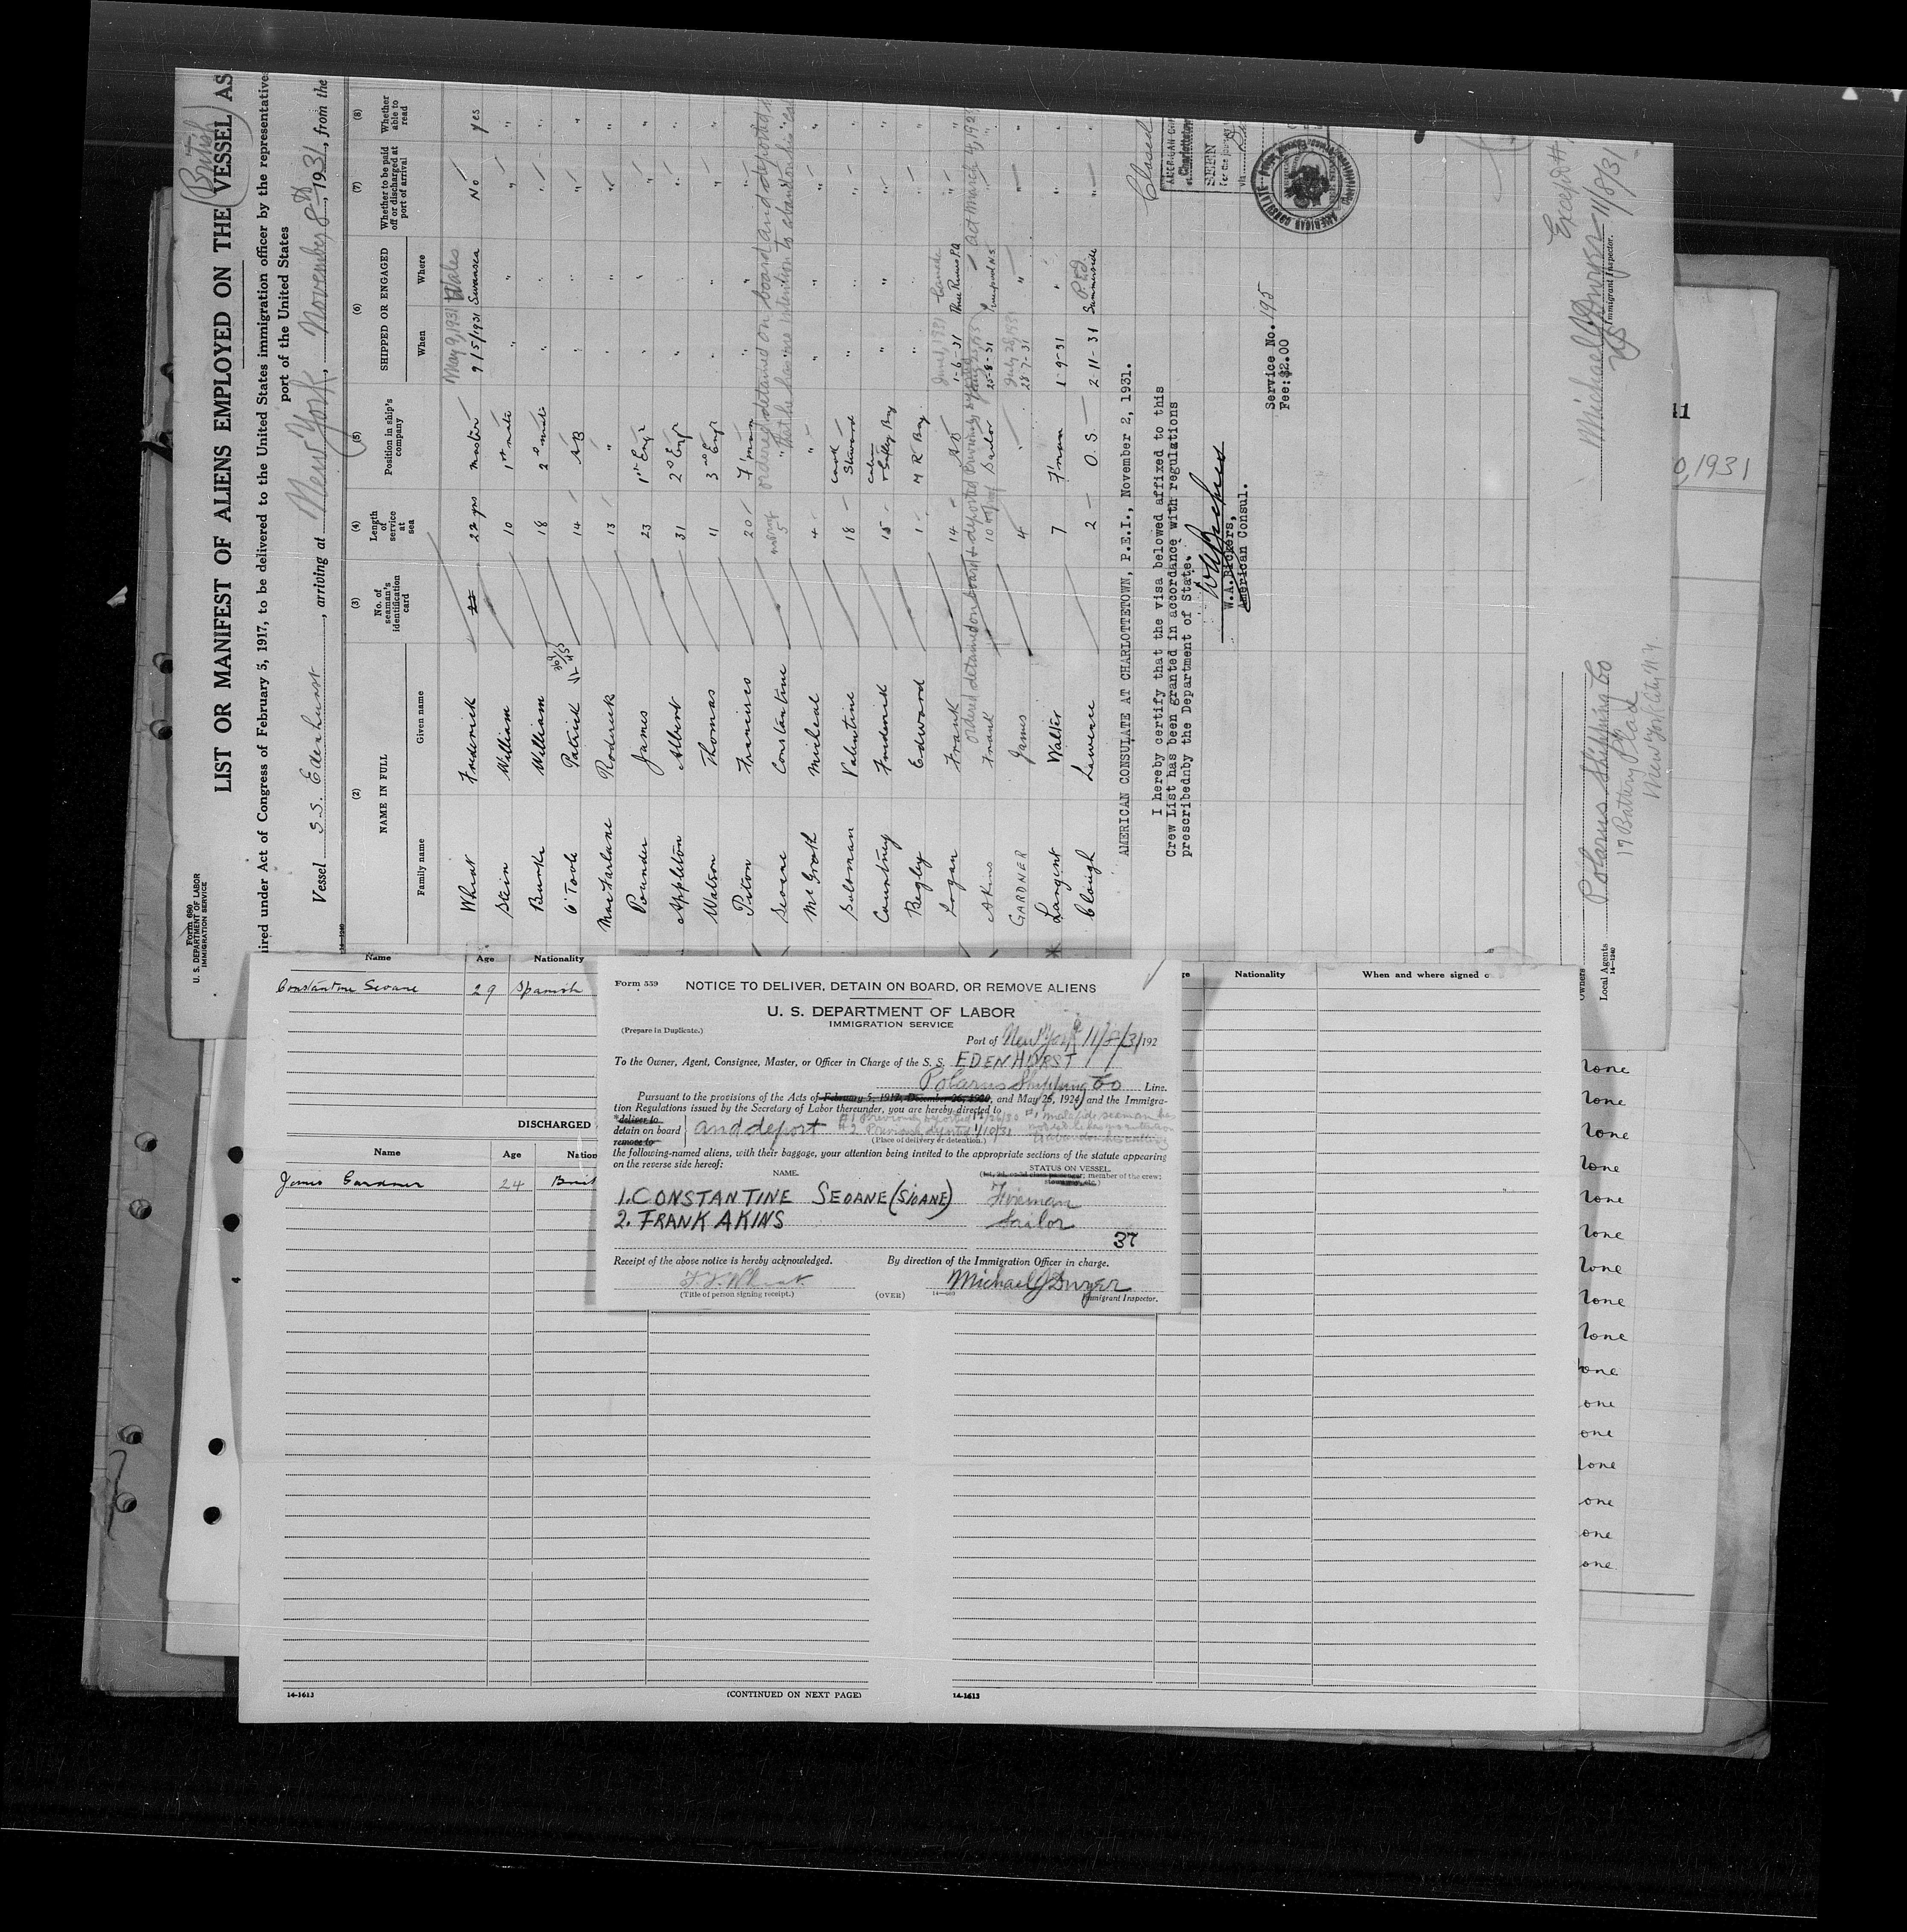 Form 680
U. S. DEPARTMENT OF LABOR
IMMIGRATION SERVICE
(British)
LIST OR MANIFEST OF ALIENS EMPLOYED ON THE VESSEL AS
ired under Act of Congress of February 5, 1917, to be delivered to the United States immigration officer by the representative
port of the United States
Vessel S.S. Edenhurst, arriving at New York, November 8th, 1931, from the
14-1240
(2) (3) (4) (5) (6) (7) (8)
NAME IN FULL No. of seaman's identification card Length of service at sea Position in ship's company SHIPPED OR ENGAGED Whether to be paid off or discharged at port of arrival Whether able to read
Family name Given name When Where
May 9, 1931 Wales
Wheat Frederick 22 yrs Master 9/5/1931 Swansea No Yes
Skin William 10 1st mate " " " "
Burke William 18 2nd mate " " " "
O'Toole Patrick 14 AB " " " "
MacFarlane Roderick 13 " " " " "
Pounder James 23 1st Engr " " " "
Appleton Albert 31 2nd Engr " " " "
Watson Thomas 11 3rd Engr " " " "
Piton Francisco 20 F'man " " " "
ordered detained on board and deported
Seoane Constantine 5 " " " " "
that he has no intention to abandon his
McGrath Micheal 4 " " " " "
Soloman Valentine 18 Cook Steward " " " "
Courtney Frederick 15 Cabin & Galley Boy " " " "
Begley Edward 1 M R Boy " " " "
June 1, 1931 Canada
Logan Frank 14 AB 1-6-31 Three Rivers P.Q. " "
ordered detained on board & deported previously act March 4, 1929
Akins Frank 10 Sailor 25-8-31 Liverpool N.S. " "
July 28, 1931
GARDNER James 4 " 28-7-31 " " "
Largent Walter 7 F'man 1-9-31 " " "
Clough Lawrence 2 O.S. 2-11-31 Summerside P.E.I. " "
Closed
AMERICAN CONSULATE AT CHARLOTTETOWN, P.E.I., November 2, 1931.
I hereby certify that the visa belowed affixed to this
Crew List has been granted in accordance with regulations
prescribednby the Department of State.
W.A.Bickers,
American Consul.
Service No. 195
Fee:$2.00
SEEN
For the journey
via
AMERICAN CONSULATE
Except #
Michael J Dwyer 11/8/31
Immigrant Inspector.
Owners
Local Agents Polarus Shipping Co
17 Battery Place
New York City N.Y.
14-1240
41
0, 1931
Name Age Nationality
Constantine Seoane 29 Spanish
Nationality When and where signed o
DISCHARGED
Name Age Nation
James Gardner 24 Brit
Form 559 NOTICE TO DELIVER, DETAIN ON BOARD, OR REMOVE ALIENS
U. S. DEPARTMENT OF LABOR
IMMIGRATION SERVICE
(Prepare in Duplicate.)
Port of New York 11/8/31 192
To the Owner, Agent, Consignee, Master, or Officer in Charge of the S. S. EDENHURST
Polarus Shipping Co Line.
Pursuant to the provisions of the Acts of February 5, 1917, December 26, 1920, and May 26, 1924, and the Immigra-
tion Regulations issued by the Secretary of Labor thereunder, you are hereby directed to
*deliver to
detain on board and deport
remove to
(Place of delivery or detention.)
the following-named aliens, with their baggage, your attention being invited to the appropriate sections of the statute appearing
on the reverse side hereof:
NAME. STATUS ON VESSEL.
(1st, 2d, or 3d class passenger; member of the crew; stowaway, etc.)
1. CONSTANTINE SEOANE (SIOANE) Fireman
2. FRANK AKINS Sailor
37
Receipt of the above notice is hereby acknowledged. By direction of the Immigration Officer in charge.
F. Wheat Michael J Dwyer
(Title of person signing receipt.) (OVER) Immigrant Inspector.
lone
lone
lone
lone
lone
lone
lone
lone
lone
one
one
one
lone
one
one
one
14-1613 (CONTINUED ON NEXT PAGE) 14-1613